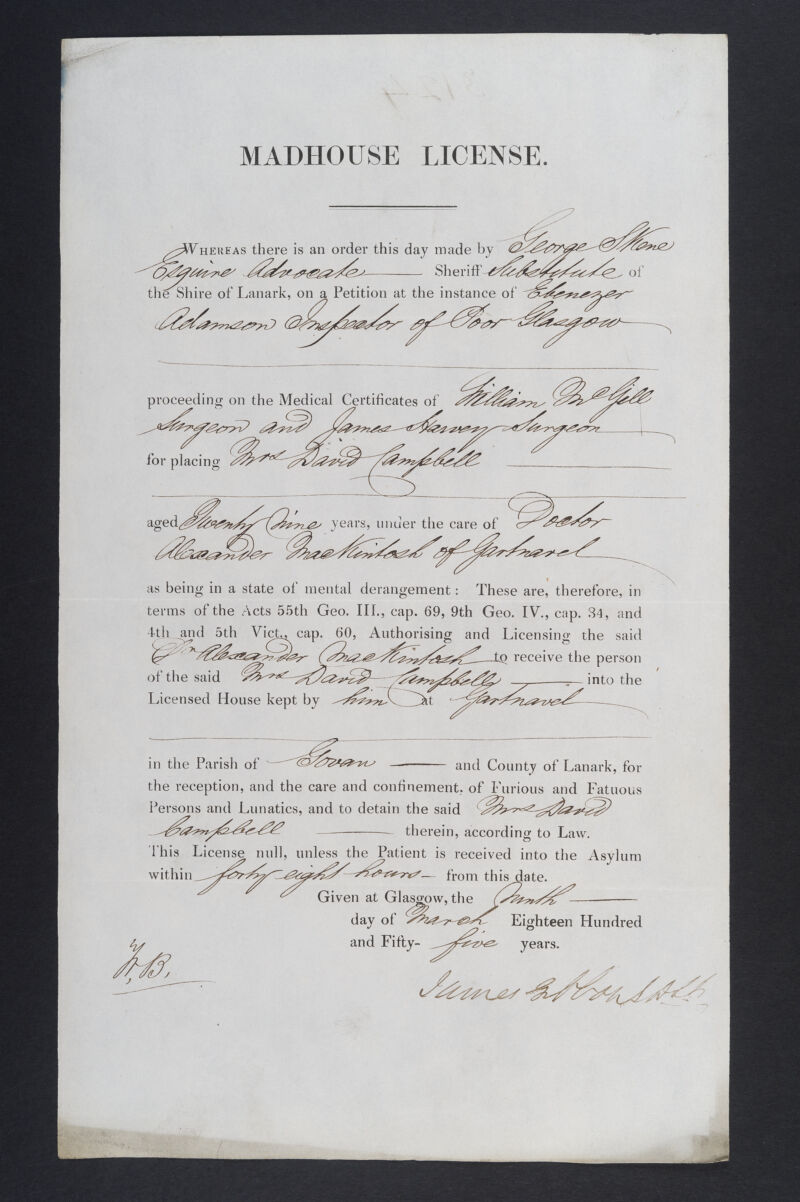 MADHOUSE LICENSE.
WHEREAS there is an order this day made by George Skene
Esquire Advocate Sheriff Substitute of
the Shire of Lanark, on a Petition at the instance of Ebenezer
Adamson Inspector of Poor Glasgow
proceeding on the Medical Certificates of William McGill
Surgeon and James Harvey Surgeon
for placing Mrs David Campbell
aged Twenty Nine years, under the care of Doctor
Alexander MacKintosh of Gartnavel
as being in a state of mental derangement: These are, therefore, in
terms of the Acts 55th Geo. III., cap. 69, 9th Geo. IV., cap. 34, and
4th and 5th Vict., cap. 60, Authorising and Licensing the said
Dr Alexander MacKintosh to receive the person
of the said Mrs David Campbell into the
Licensed House kept by him at Gartnavel
in the Parish of Govan and County of Lanark, for
the reception, and the care and confinement, of Furious and Fatuous
Persons and Lunatics, and to detain the said Mrs David
Campbell therein, according to Law.
This License null, unless the Patient is received into the Asylum
within forty eight hours from this date.
Given at Glasgow, the Ninth
day of March Eighteen Hundred
and Fifty-five years.
James